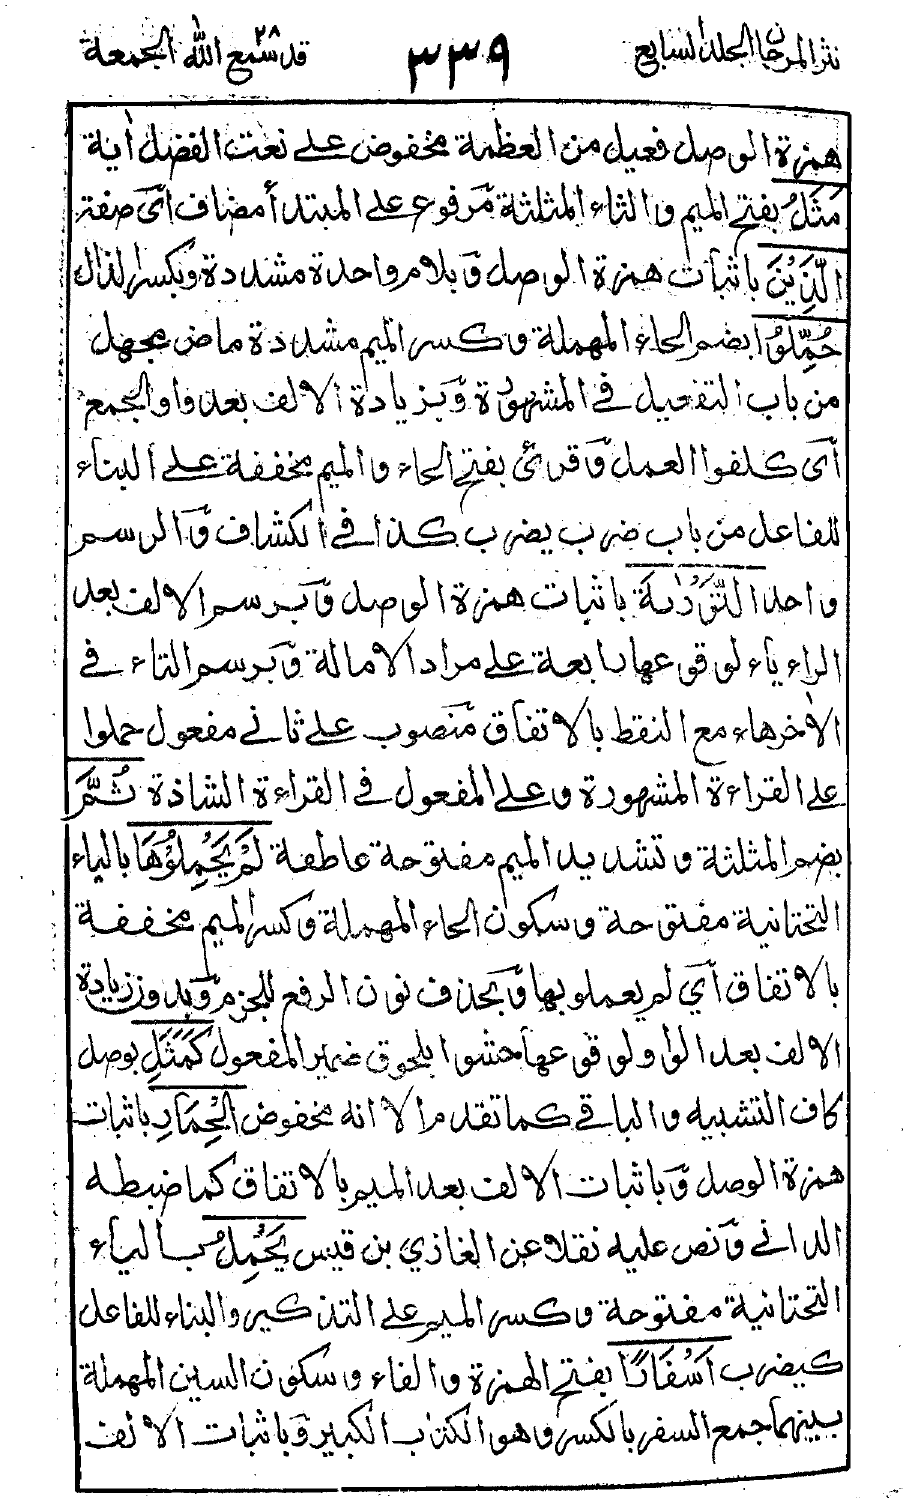 نثر المرجان المجلد السابع ٣٣٩ قد سمع الله ٢٨ الجمعة
همزة الوصل فعيل من العظمة مخفوض على نعت الفضل أية
مَثَلُ بفتح الميم والثاء المثلثة مرفوع على المبتدأ مضاف أي صفة
الَّذِيْنَ باثبات همزة الوصل وبلام واحدة مشددة وبكسر الذال
حُمِّلُوا بضم الحاء المهملة وكسر الميم مشددة ماض مجهل
من باب التفعيل في المشهورة وبزيادة الالف بعد واو الجمع
أي كلفوا العمل وقرئ بفتح الحاء والميم مخففة على البناء
للفاعل من باب ضرب يضرب كذا في الكشاف والرسم
واحد التَّوْرٰىةَ باثبات همزة الوصل وبرسم الالف بعد
الراء ياء لوقوعها رابعة على مراد الامالة وبرسم التاء في
الأخر هاء مع النقط بالاتفاق منصوب على ثاني مفعول حملوا
على القراءة المشهورة وعلى المفعول في القراءة الشاذة ثُمَّ
بضم المثلثة وتشديد الميم مفتوحة عاطفة لَمْ يَحْمِلُوْهَا بالياء
التحتانية مفتوحة وسكون الحاء المهملة وكسر الميم مخففة
بالاتفاق أي لم يعملو بها وبحذف نون الرفع للجزم وبدون زيادة
الالف بعد الواو لوقوعها حشوا بلحوق ضمير المفعول كَمَثَلِ بوصل
كاف التشبيه والباقي كما تقدم الا انه مخفوض الْحِمَارِ باثبات
همزة الوصل وباثبات الالف بعد الميم بالاتفاق كما ضبطه
الداني ونص عليه نقلا عن الغازي بن قيس يَحْمِلُ بالياء
التحتانية مفتوحة وكسر الميم على التذكير والبناء للفاعل
كيضرب اَسْفَارًا بفتح الهمزة والفاء وسكون السين المهملة
بينهما جمع السفر بالكسر وهو الكتاب الكبير وباثبات الالف